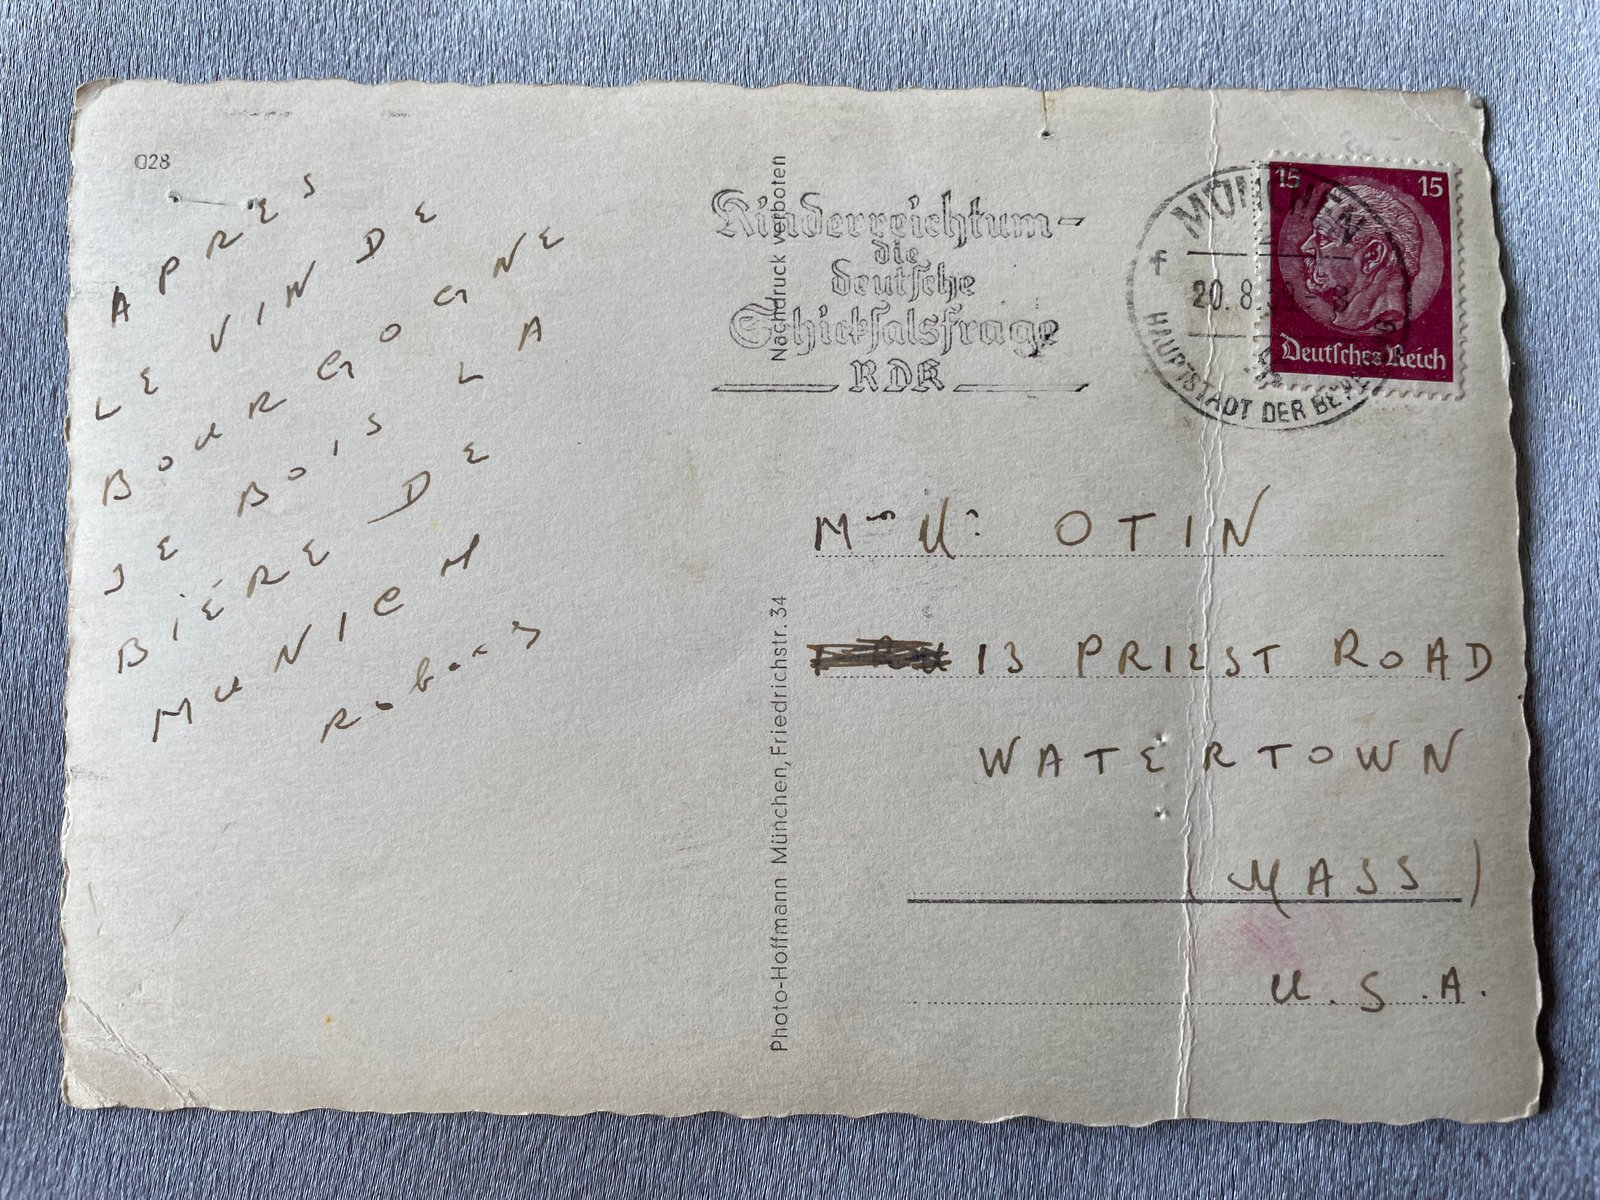 028
APRES
LE VIN DE
BOURGOGNE
JE BOIS LA
BIÉRE DE
MUNICH
Nachdruck verboten
Photo-Hoffmann München, Friedrichstr. 34
Kinderreichtum-
die
deutsche
Schicksalsfrage
RDK
MÜNCHEN
20.8.
HAUPTSTADT DER
15 15
Deutsches Reich
OTIN
13 PRIEST ROAD
WATERTOWN
(MASS)
U.S.A.